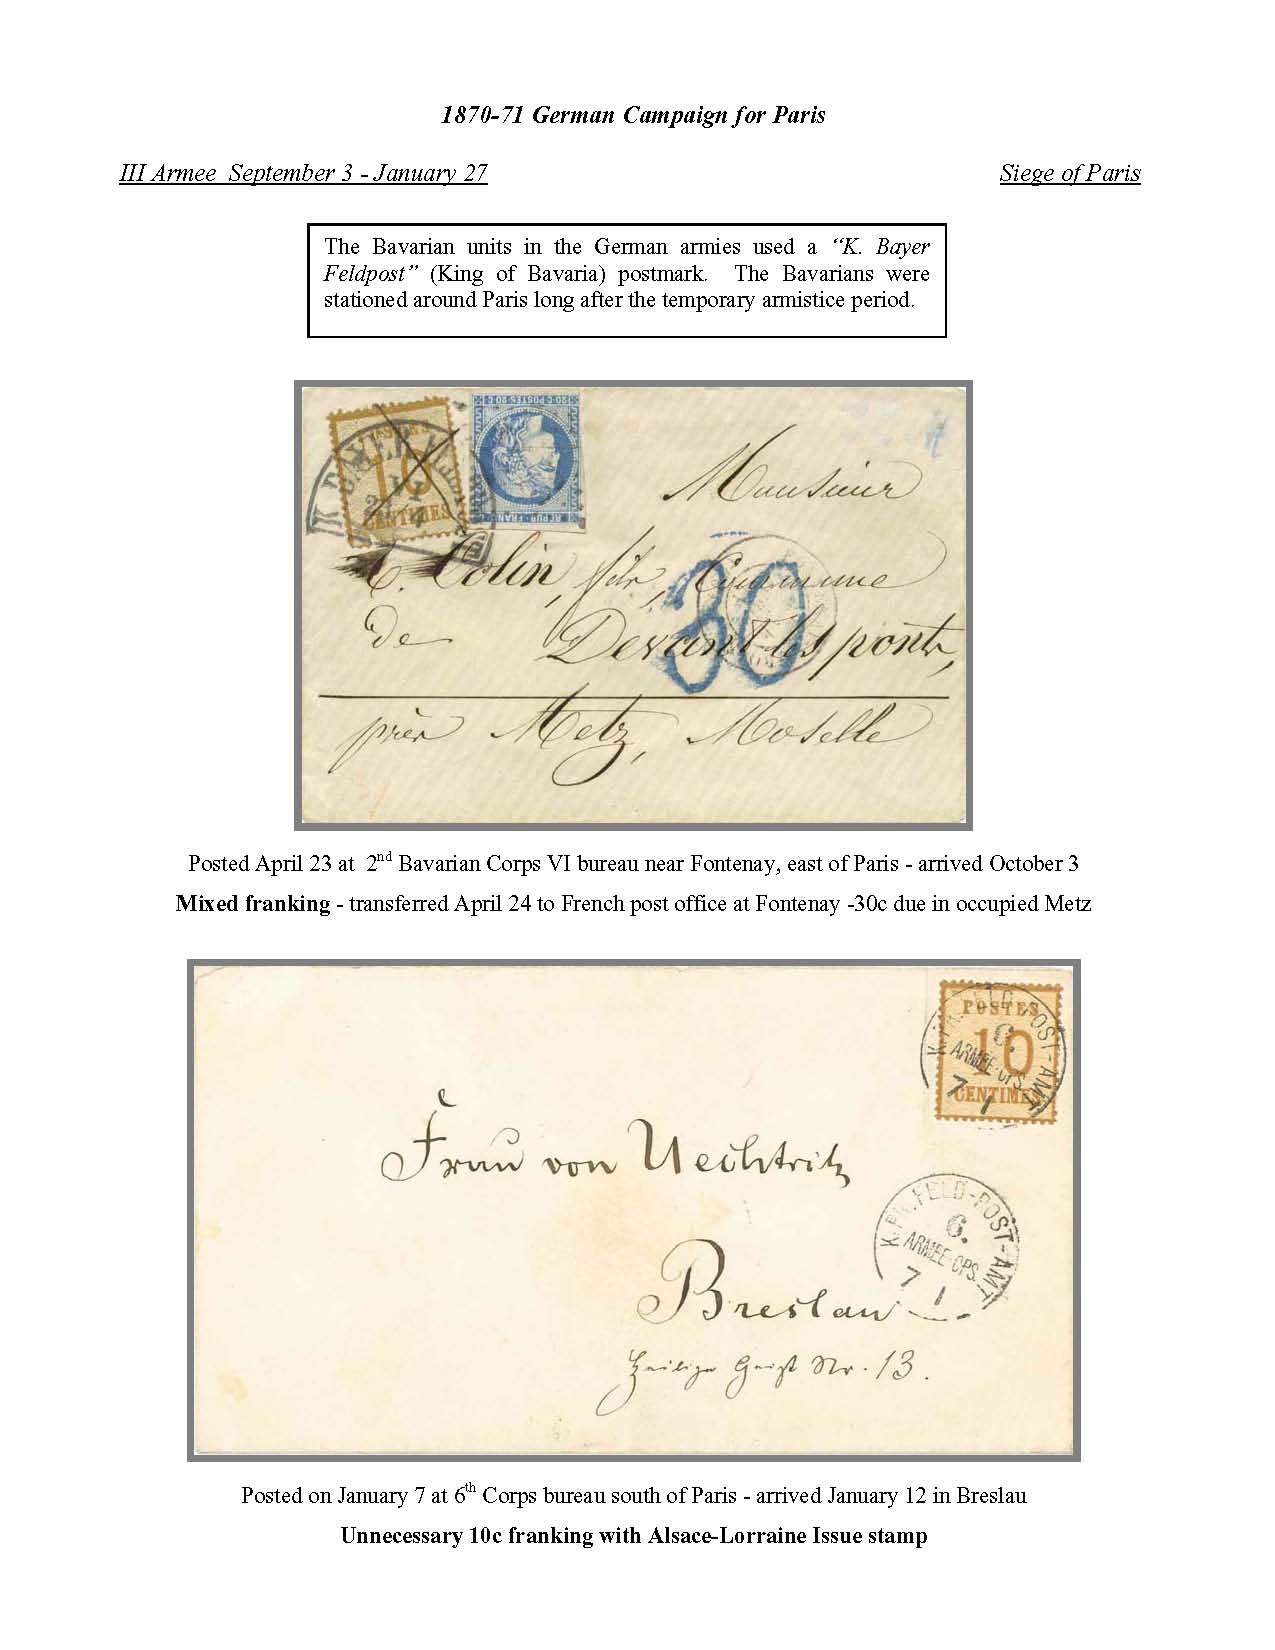 1870-71 German Campaign for Paris
III Armee September 3 - January 27
Siege of Paris
The Bavarian units in the German armies used a “K. Bayer
Feldpost” (King of Bavaria) postmark. The Bavarians were
stationed around Paris long after the temporary armistice period.
10
CENTIMES
20 C POSTES 20 C
REPUB FRANC
Monsieur
C. Colin, fils, Commune
30
de Devant les ponts,
près Metz, Moselle
Posted April 23 at 2nd Bavarian Corps VI bureau near Fontenay, east of Paris - arrived October 3
Mixed franking - transferred April 24 to French post office at Fontenay -30c due in occupied Metz
POSTES
10
CENTIMES
K.PR.FELD-POST-AMT
6.
ARMEE-CPS.
7 1
Frau von Uechtritz
K.PR.FELD-POST-AMT
6.
ARMEE-CPS.
7 1
Breslau
Heilige Geist Str. 13.
Posted on January 7 at 6th Corps bureau south of Paris - arrived January 12 in Breslau
Unnecessary 10c franking with Alsace-Lorraine Issue stamp